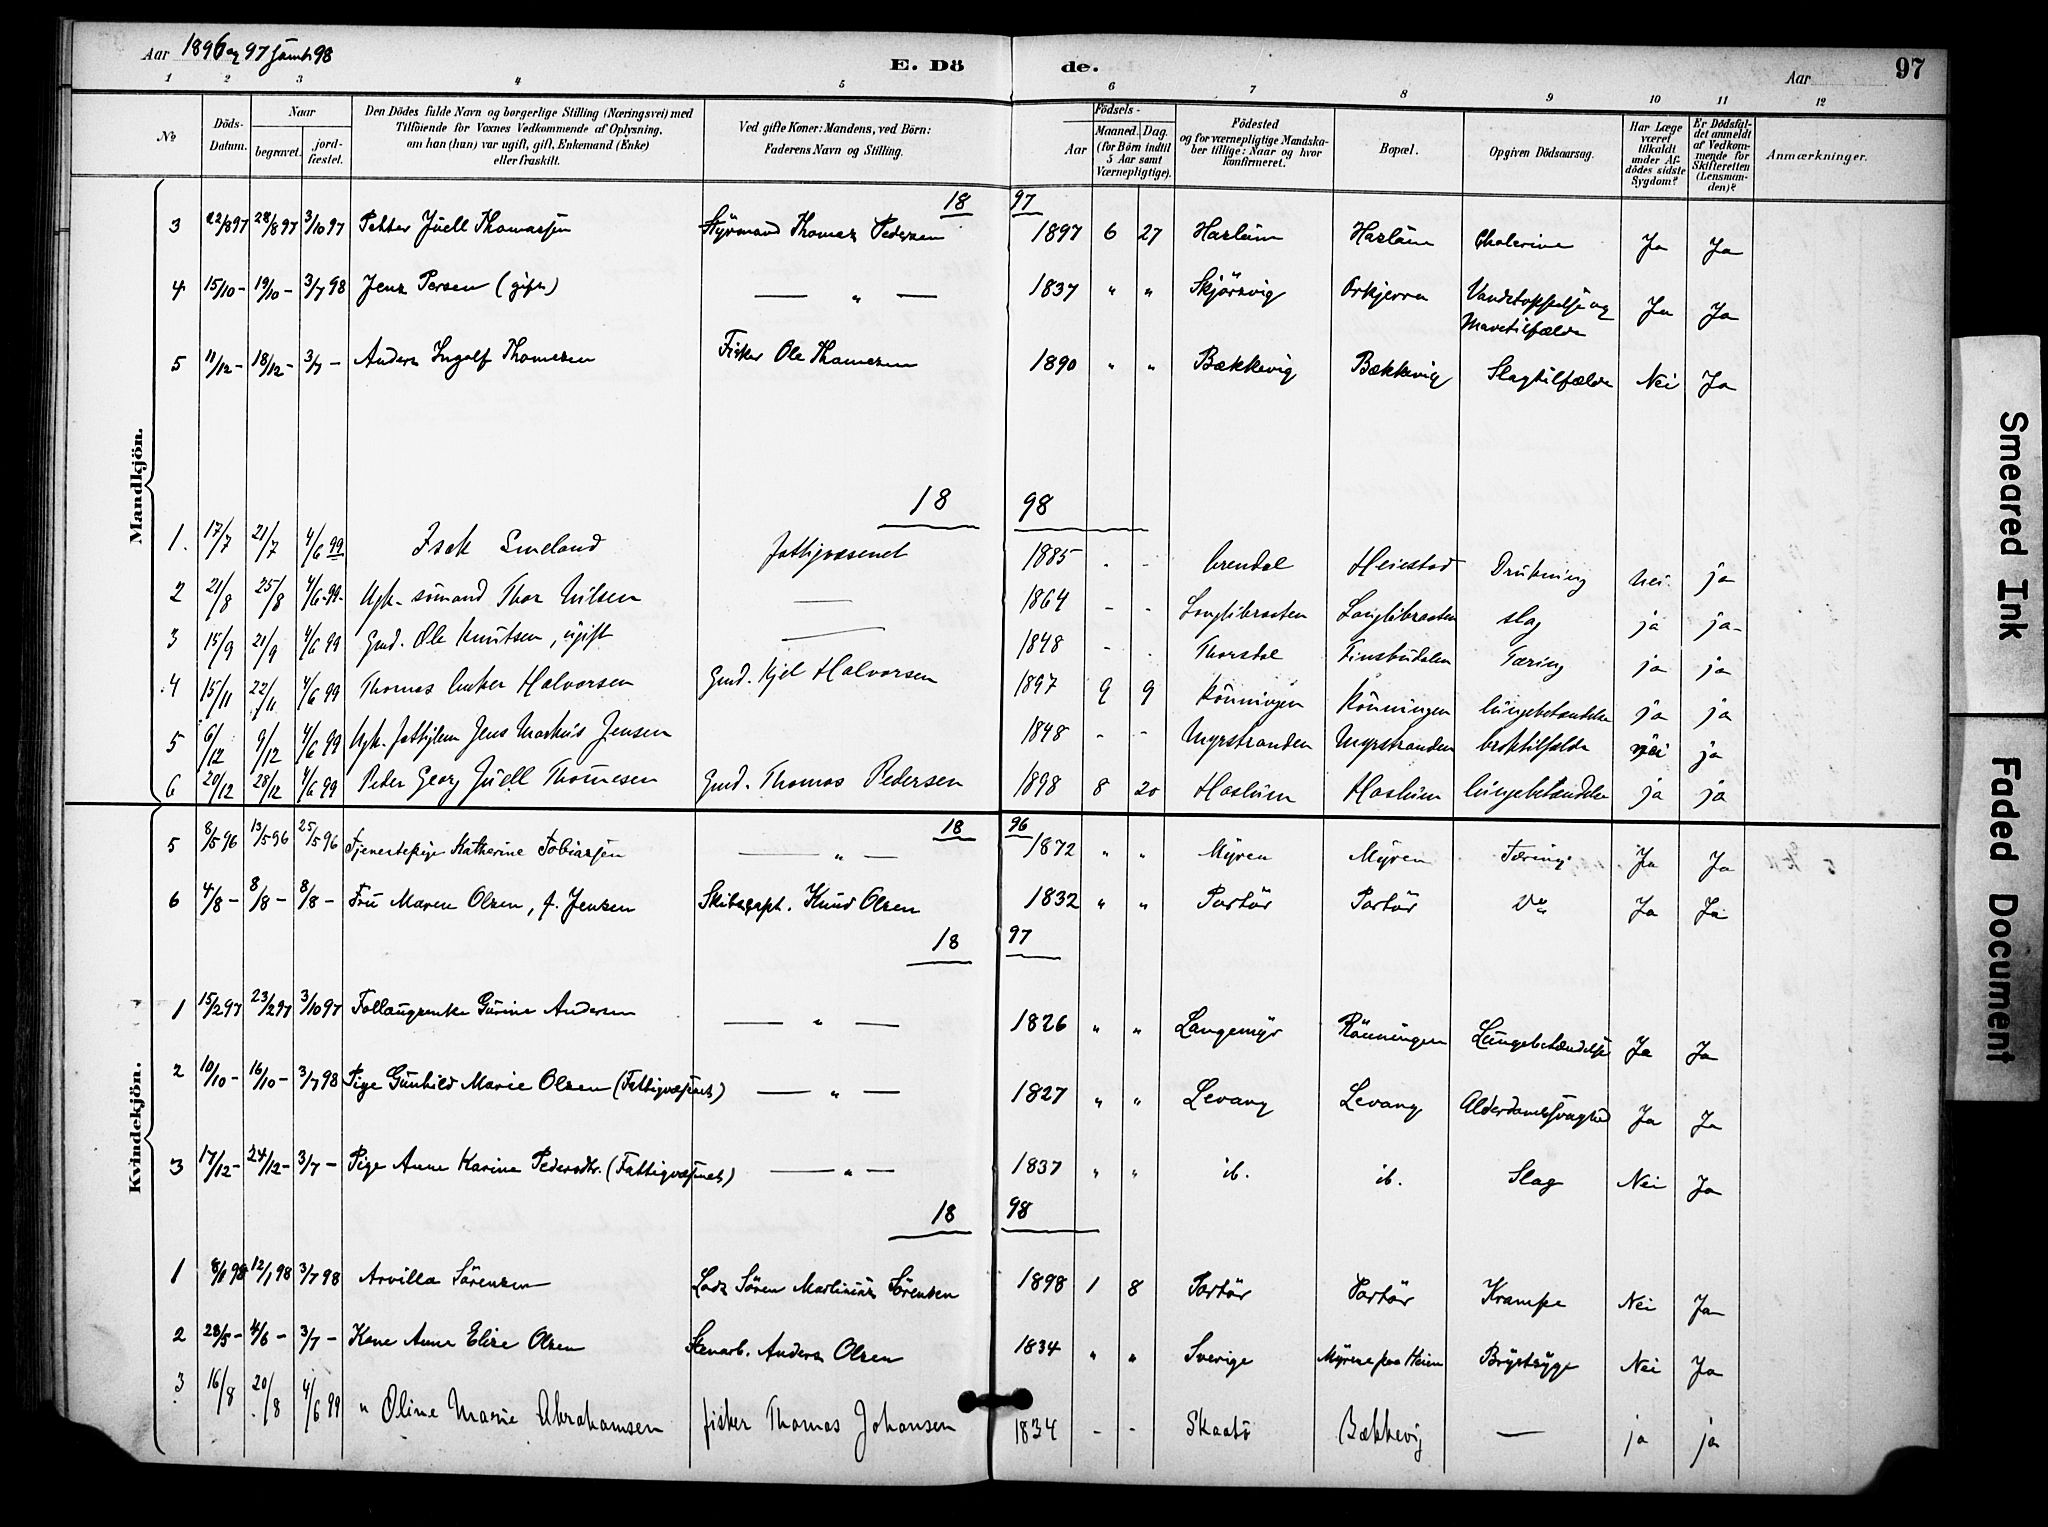 Aar 1896 og 97 samt 98
E. Dö de.
Aar 97
1 2 3 4 5 6 7 8 9 10 11 12
No
Döds-Datum.
Naar
begravet.
jordfæstet.
Den Dödes fulde Navn og borgerlige Stilling (Næringsvei) med Tilföiende for Voxnes Vedkommende af Oplysning, om han (han) var ugift, gift, Enkemand (Enke) eller fraskilt.
Ved gifte Koner: Mandens, ved Börn: Faderens Navn og Stilling.
Födsels-
Aar
Maaned. Dag.
(for Börn indtil 5 Aar samt Værnepligtige).
Födested og for værnepligtige Mandskaber tillige: Naar og hvor konfirmeret.
Bopæl.
Opgiven Dödsaarsag.
Har Læge været tilkaldt under Afdödes sidste Sygdom?
Er Dödsfaldet anmeldt af Vedkommende for Skifteretten (Lensmanden)?
Anmærkninger.
Mandkjön.
18 97
3 22/8 97 28/8 97 3/10 97 Petter Juell Thomassen Styrmand Thomas Pedersen 1897 6 27 Haslum Haslum Cholerine Ja Ja
4 15/10 - 19/10 - 3/7 98 Jens Persen (gift) — " — 1837 " " Skjörsvig Orkjerra Vandstoppelse og Mavetilfælde Ja Ja
5 11/12 - 18/12 - 3/7 - Anders Ingolf Thomesen Fisker Ole Thomesen 1890 " " Bækkevig Bækkevig Slagtilfælde Nei Ja
18 98
1. 17/7 21/7 4/6 99 Isak Smeland fattigvæsenet 1885 - - Arendal Heiestad Drukning nei ja
2 21/8 25/8 4/6 99 Ugk. sömand Thor Nilsen — 1864 - - Langlibraaten Langlibraaten slag ja ja
3 15/9 21/9 4/6 99 Gmd. Ole Knutsen, ugift — 1848 - - Thorsdal Finsbudalen Tæring ja ja
4 15/11 22/11 4/6 99 Thomas Anker Halvorsen Gmd. Kjel Halvorsen 1897 9 9 Rönningen Rönningen lungebetændelse ja ja
5 6/12 9/12 4/6 99 Ugk. fattiglem Jens Markus Jensen 1848 - - Myrstranden Myrstranden broktilfælde nei ja
6 20/12 28/12 4/6 99 Peder Georg Juell Thomesen Gmd. Thomas Pedersen 1898 8 20 Haslum Haslum lungebetændelse ja ja
Kvindekjön.
18 96
5 8/5 96 13/5 96 25/5 96 Tjenestepige Katherine Tobiassen — " — 1872 " " Myren Myren Tæring Ja Ja
6 4/8 - 8/8 - 8/8 - Fru Maren Olsen, f. Jensen Skibscapt. Knud Olsen 1832 " " Portör Portör Do Ja Ja
18 97
1 15/2 97 23/2 97 3/10 97 Follaugsenke Gurine Andersen — " — 1826 " " Langemyr Rönningen Lungebetændelse Ja Ja
2 10/10 - 16/10 - 3/7 98 Pige Gunhild Marie Olsen (Fattigvæsenet) — " — 1827 " " Levang Levang Alderdomssvaghed Ja Ja
3 17/12 - 24/12 - 3/7 - Pige Anne Karine Pedersdtr. (Fattigvæsenet) — " — 1837 " " ib. ib. Slag Nei Ja
18 98
1 8/1 98 12/1 98 3/7 98 Arvilla Sörensen Lods Sören Martinius Sörensen 1898 1 8 Portör Portör Krampe Nei Ja
2 28/5 - 4/6 - 3/7 - Kone Anne Elise Olsen Stenarb. Anders Olsen 1834 " " Sverige Myrene paa Heien Brystsyge Nei Ja
3 16/8 20/8 4/6 99 " Oline Marie Abrahamsen fisker Thomas Johansen 1834 - - Skaatö Bækkevig — ja ja
Smeared Ink
Faded Document